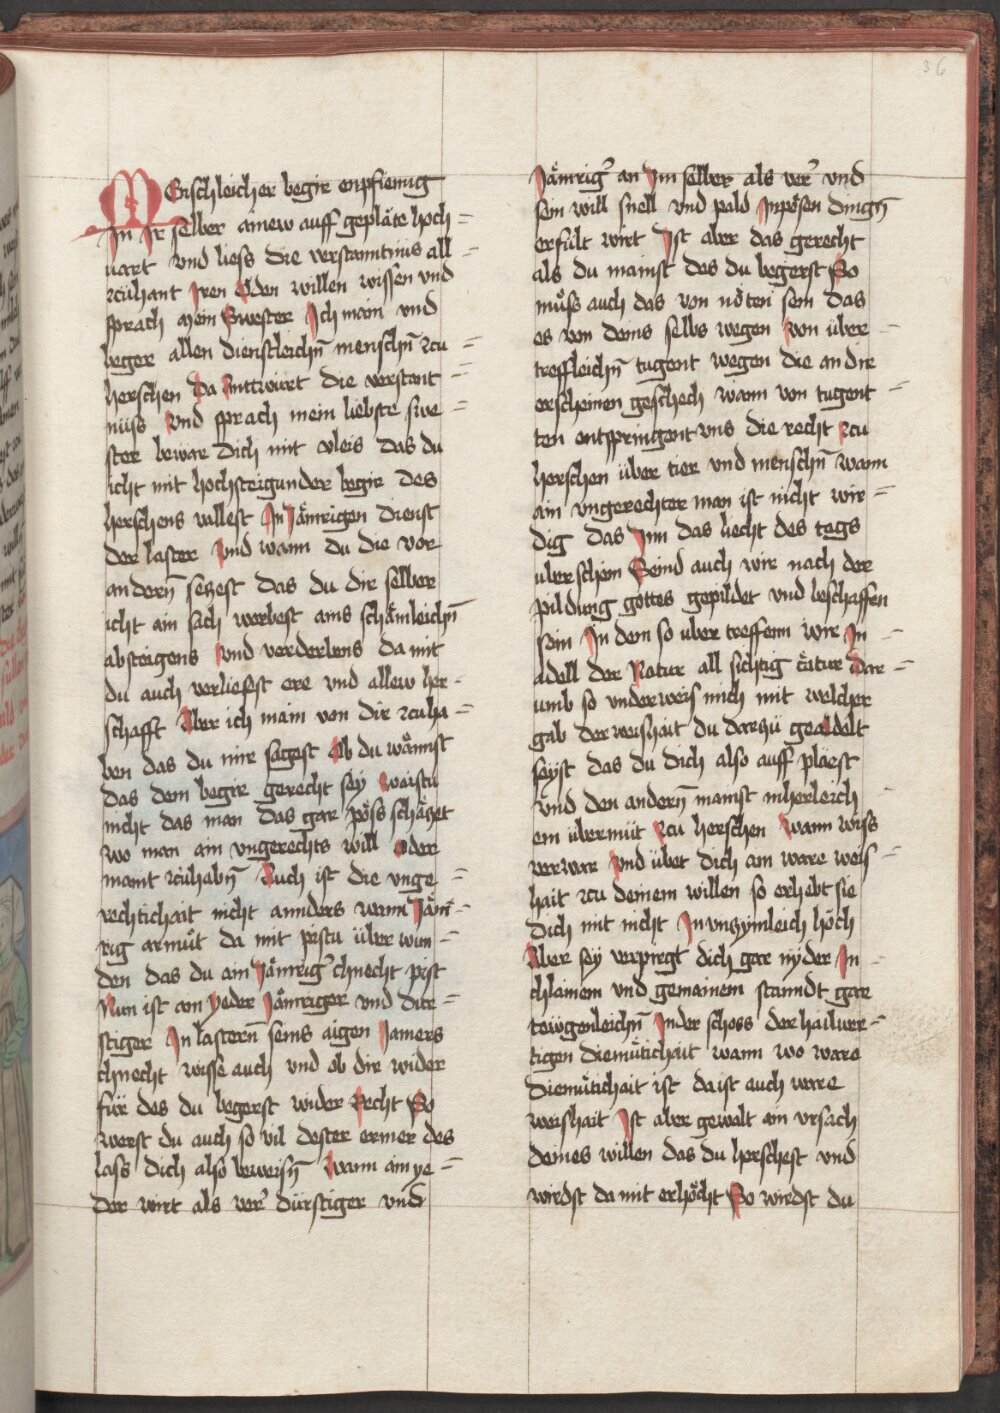 36
MEnschleicher begir enpfienng
In Ir selber ainew auff geplate hoch=
uart vnd liess die verstanntnus all=
zcuhant Iren Oden willen wissen vnd
sprach mein Swester Ich main vnd
beger allen dienstleichn̄ menschn̄ zcu=
herschen Da Anttwurt die verstant=
nuss Vnd sprach mein liebste swe=
ster bewar dich mit vleis das du
icht mit hochsteigunder begir des
herschens vallest In Jämrigen dienst
der laster Vnd wann du die vor
andern̄ sehest das du dir selber
icht ain sach werbest ains schämleichn̄
absteigens Vnd verderbens da mit
du auch verliesest ere vnd allew her-
schafft Aber ich main von dir zcuha=
ben das du mir sagest Ob du wännst
das dem begir gerecht sey Waistu
nicht das man das gar pöss schäczt
wo man ain vngerechts will Oder
maint zcuhabn̄ Auch ist die vnge=
rechtichait nicht annders wann Jäm=
rig armüt da mit pistu über wun=
den das du ain Jämrig' chnecht pist
Nun ist ain yeder Jämriger vnd dur=
stiger In lastern̄ seins aigen Jamers
chnecht wisse auch vnd ob dir wider
für des du begerst wider Recht So
werst du auch so vil dester ermer des
lass dich also beweisn̄ Wann ain ye=
der wirt als ver' dürstiger vnd
Jämrig' an Im selber als ver' vnd
sein will snell vnd pald Inpösen dingn̄
erfült wirt Ist aber das gerecht
als du mainst des du begerst So
muss auch das von nöten sein das
es von deins selbs wegen Von über=
treffleichn̄ tugent wegen die an dir
erscheinen geschech wann von tugent=
ten entspringent vns die recht zcu
herschen über tier vnd menschn̄ wann
ain vngerechter man ist nicht wir=
dig das Inn das liecht des tags
uberschein Seind auch wir nach der
pildung gottes gepildet vnd beschaffen
sein In dem so uber treffenn wir In=
adell der Natur all sichtig cratur Dar=
umb so vnderweis mich mit welcher
gab der weishait du darzü geadelt
seyst das du dich also auff plaest
vnd den andern̄ mainst inherleich
ein übermüt zcu herschen Wann wiss
verwar Vnd übet dich ain ware weis=
hait zcu deinem willen so erhebt sie
dich mit nicht In vnzymleich höch
Aber sy verpirgt dich gar nyder In=
chlainem vnd gemainem stanndt gar
tewgenleichn̄ In der schoss der hailwer=
tigen diemütichait wann wo ware
diemütichait ist da ist auch ware
weishait Ist aber gewalt ain vrsach
deines willen das du herschest vnd
wirdst da mit erhöcht So wirdst du